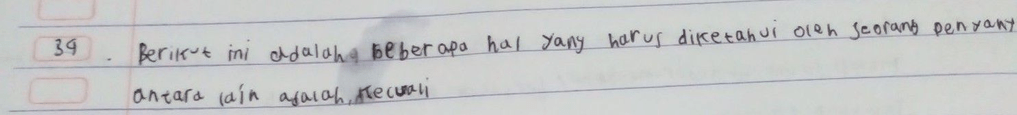 39. Berikut ini adalah beberapa hal yang harus diketahui oleh seorang penyany
antara lain adalah, kecuali